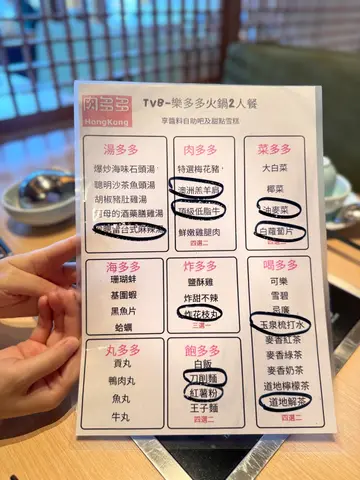 肉多多
HongKong
TVB-樂多多火鍋2人餐
享醬料自助吧及甜點雪糕
湯多多
爆炒海味石頭湯
聰明沙茶魚頭湯
胡椒豬肚雞湯
母的酒藥膳雞湯
台式麻辣湯
肉多多
特選梅花豬
澳洲羔羊肩
頂級低脂牛
鮮嫩雞腿肉
四選二
菜多多
大白菜
椰菜
油麥菜
白蘿蔔片
四選二
海多多
珊瑚蚌
基圍蝦
黑魚片
蛤蠣
炸多多
鹽酥雞
炸甜不辣
炸花枝丸
三選一
喝多多
可樂
雪碧
忌廉
玉泉梳打水
麥香紅茶
麥香綠茶
麥香奶茶
道地檸檬茶
道地解茶
四選二
丸多多
貢丸
鴨肉丸
魚丸
牛丸
飽多多
白飯
刀削麵
紅薯粉
王子麵
四選二